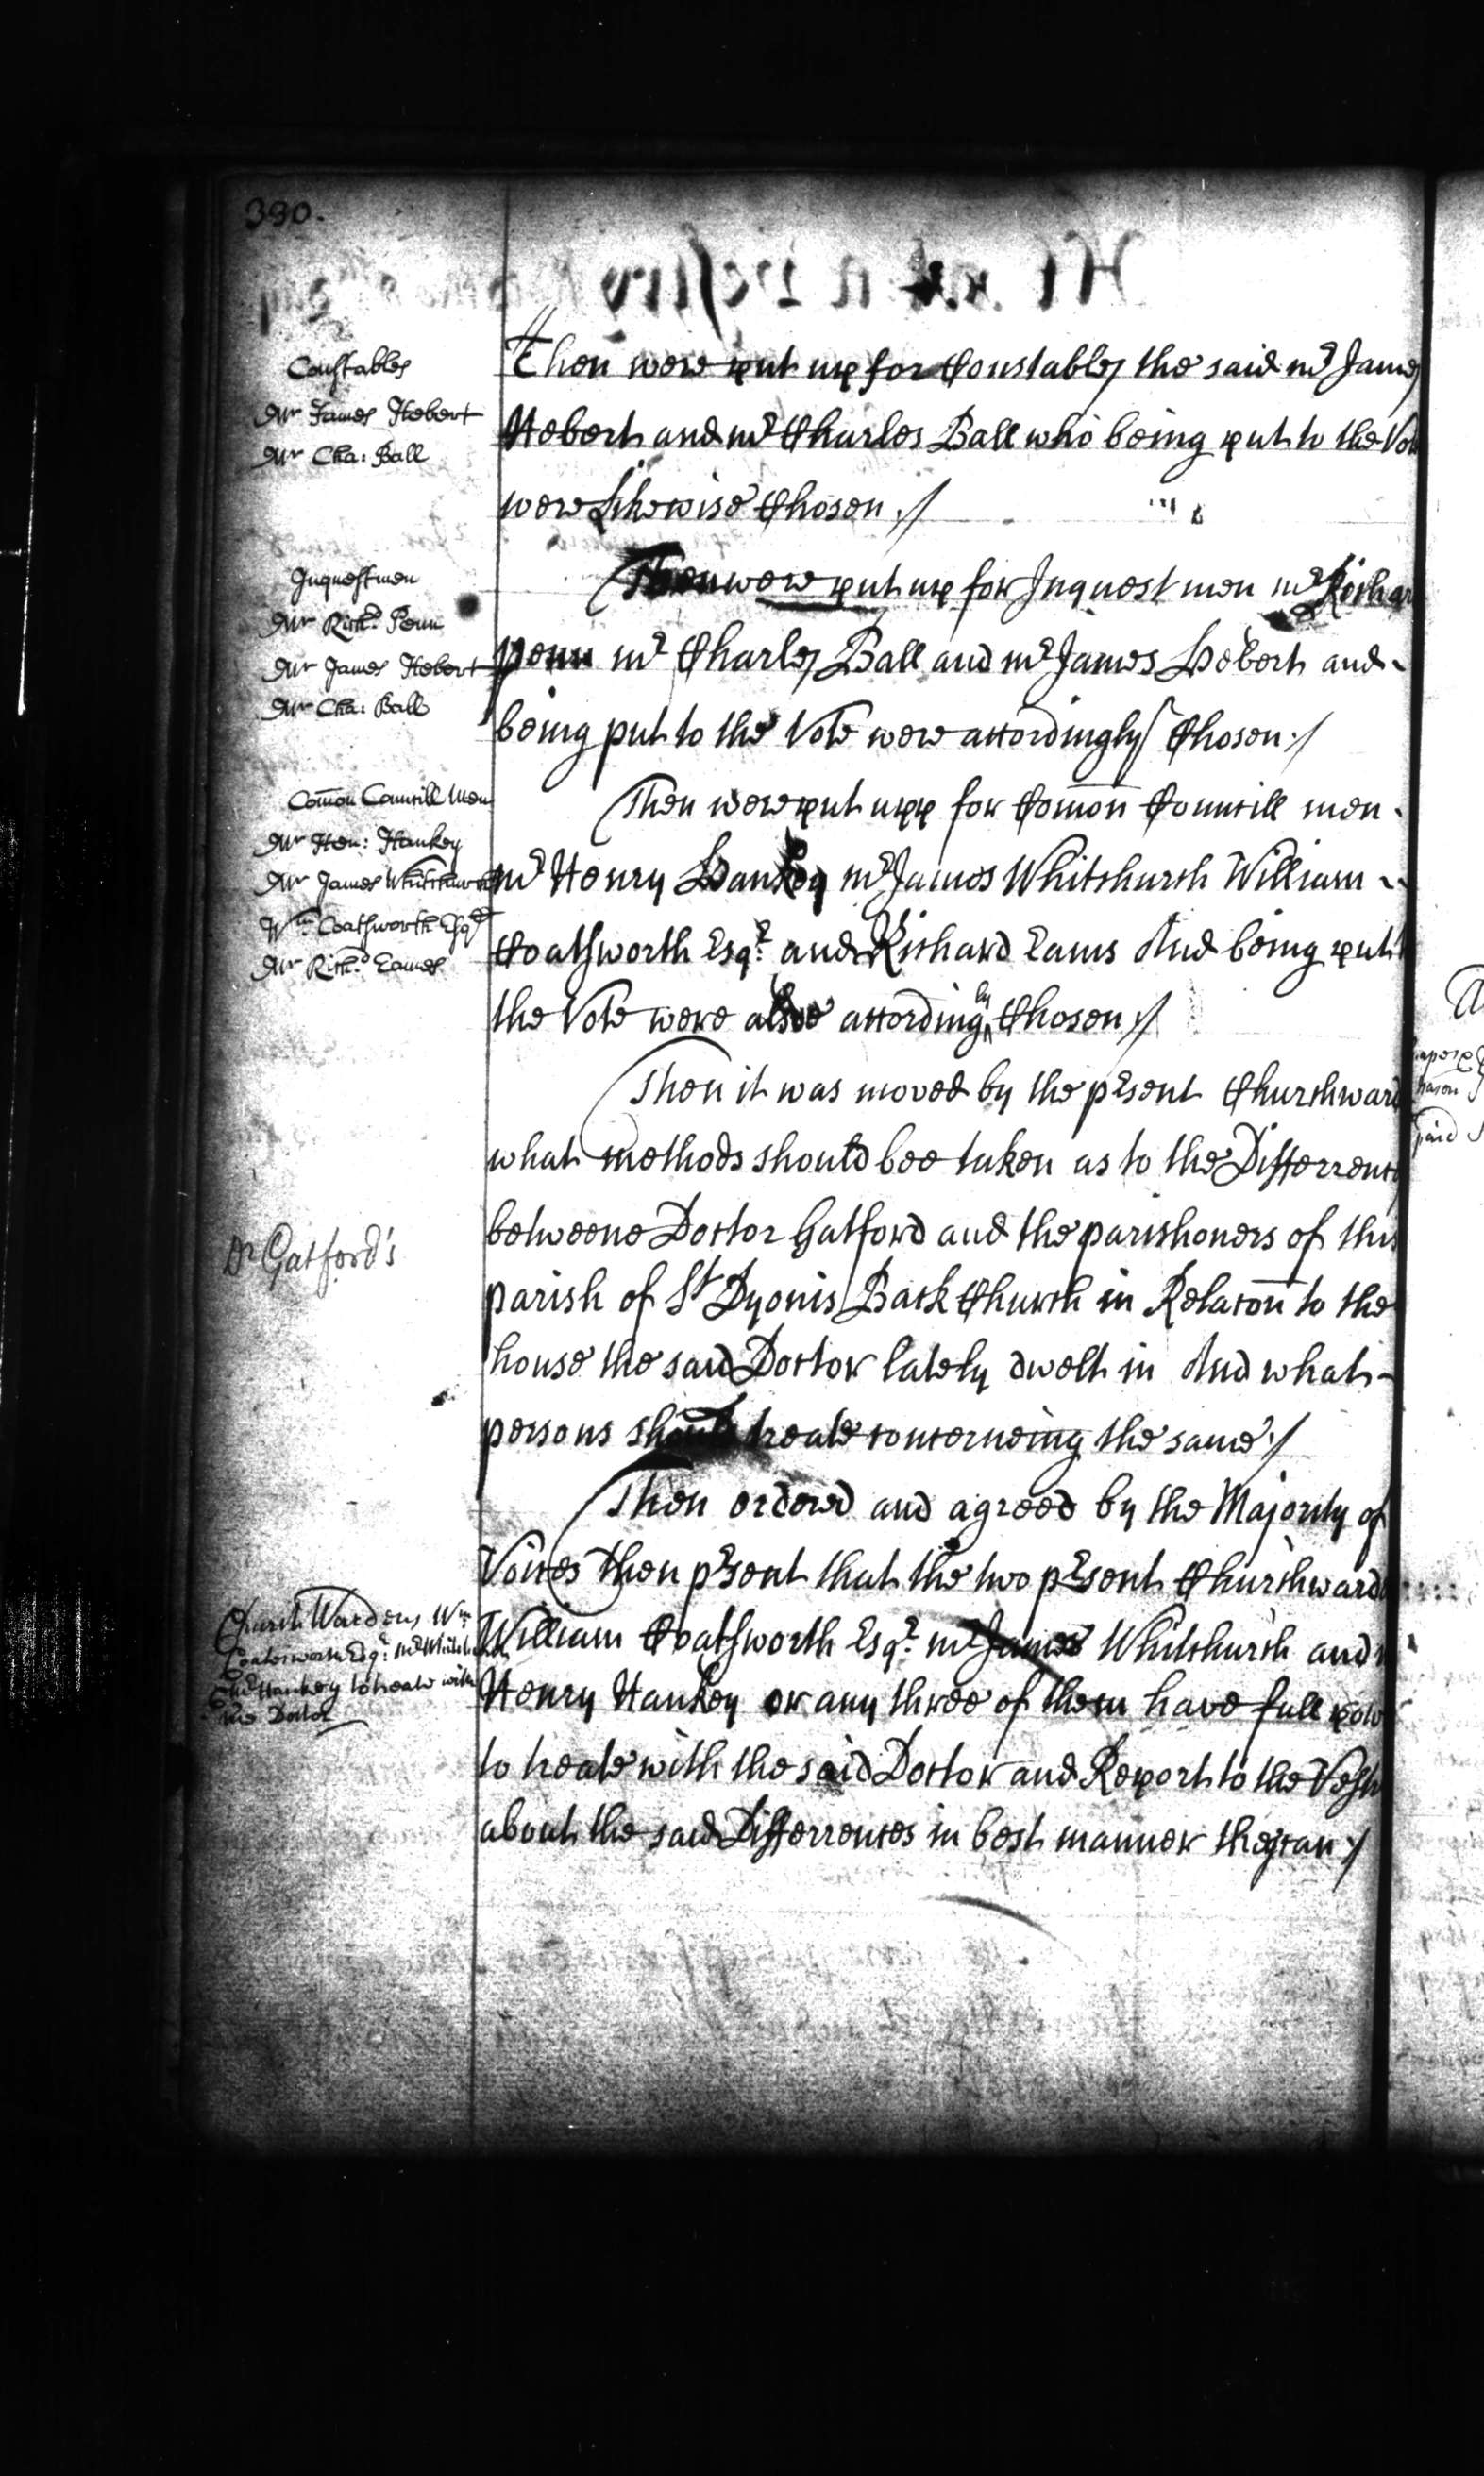 390.
Constables
Mr James Hebert
Mr Cha: Ball
Then were put up for Constables the said mr James
Hebert and mr Charles Ball who being put to the
were Likewise Chosen ./
Inquestmen
Mr Richd. Penn
Mr James Hebert
Mr Cha: Ball
Then were put up for Inquest men mr
Penn mr Charles Ball and mr James Hebert and
being put to the Vote were accordingly Chosen ./
Com̄on Councill Men
Mr Hen: Hankey
Mr James Whitchurch
Wm. Coatsworth Esqr
Mr Richd. Eames
Then were put upp for Com̄on Councill men
mr Henry Hankey mr James Whitchurch William
Coatsworth Esqr. and Richard Eams And being put
the Vote were alsoe accordingly Chosen ./
Then it was moved by the prsent
what methods should bee taken as to the
Dr Gatford's
betweene Doctor Gatford and the parishoners of this
parish of St Dyonis Back Church in Relac̄on to the
house the said Doctor lately dwelt in And what
persons should treate concerneing the same ./
Then ordered and agreed by the Majority of
Voices then prsent that the two prsent
Church Wardens Wm
Coatesworth Esqr: mr
mr Hankey to treate with
the Doctor
William Coatsworth Esqr. mr James Whitchurch and
Henry Hankey or any three of them have full
to treate with the said Doctor and Report to the
about the said Differrences in best manner they can ./